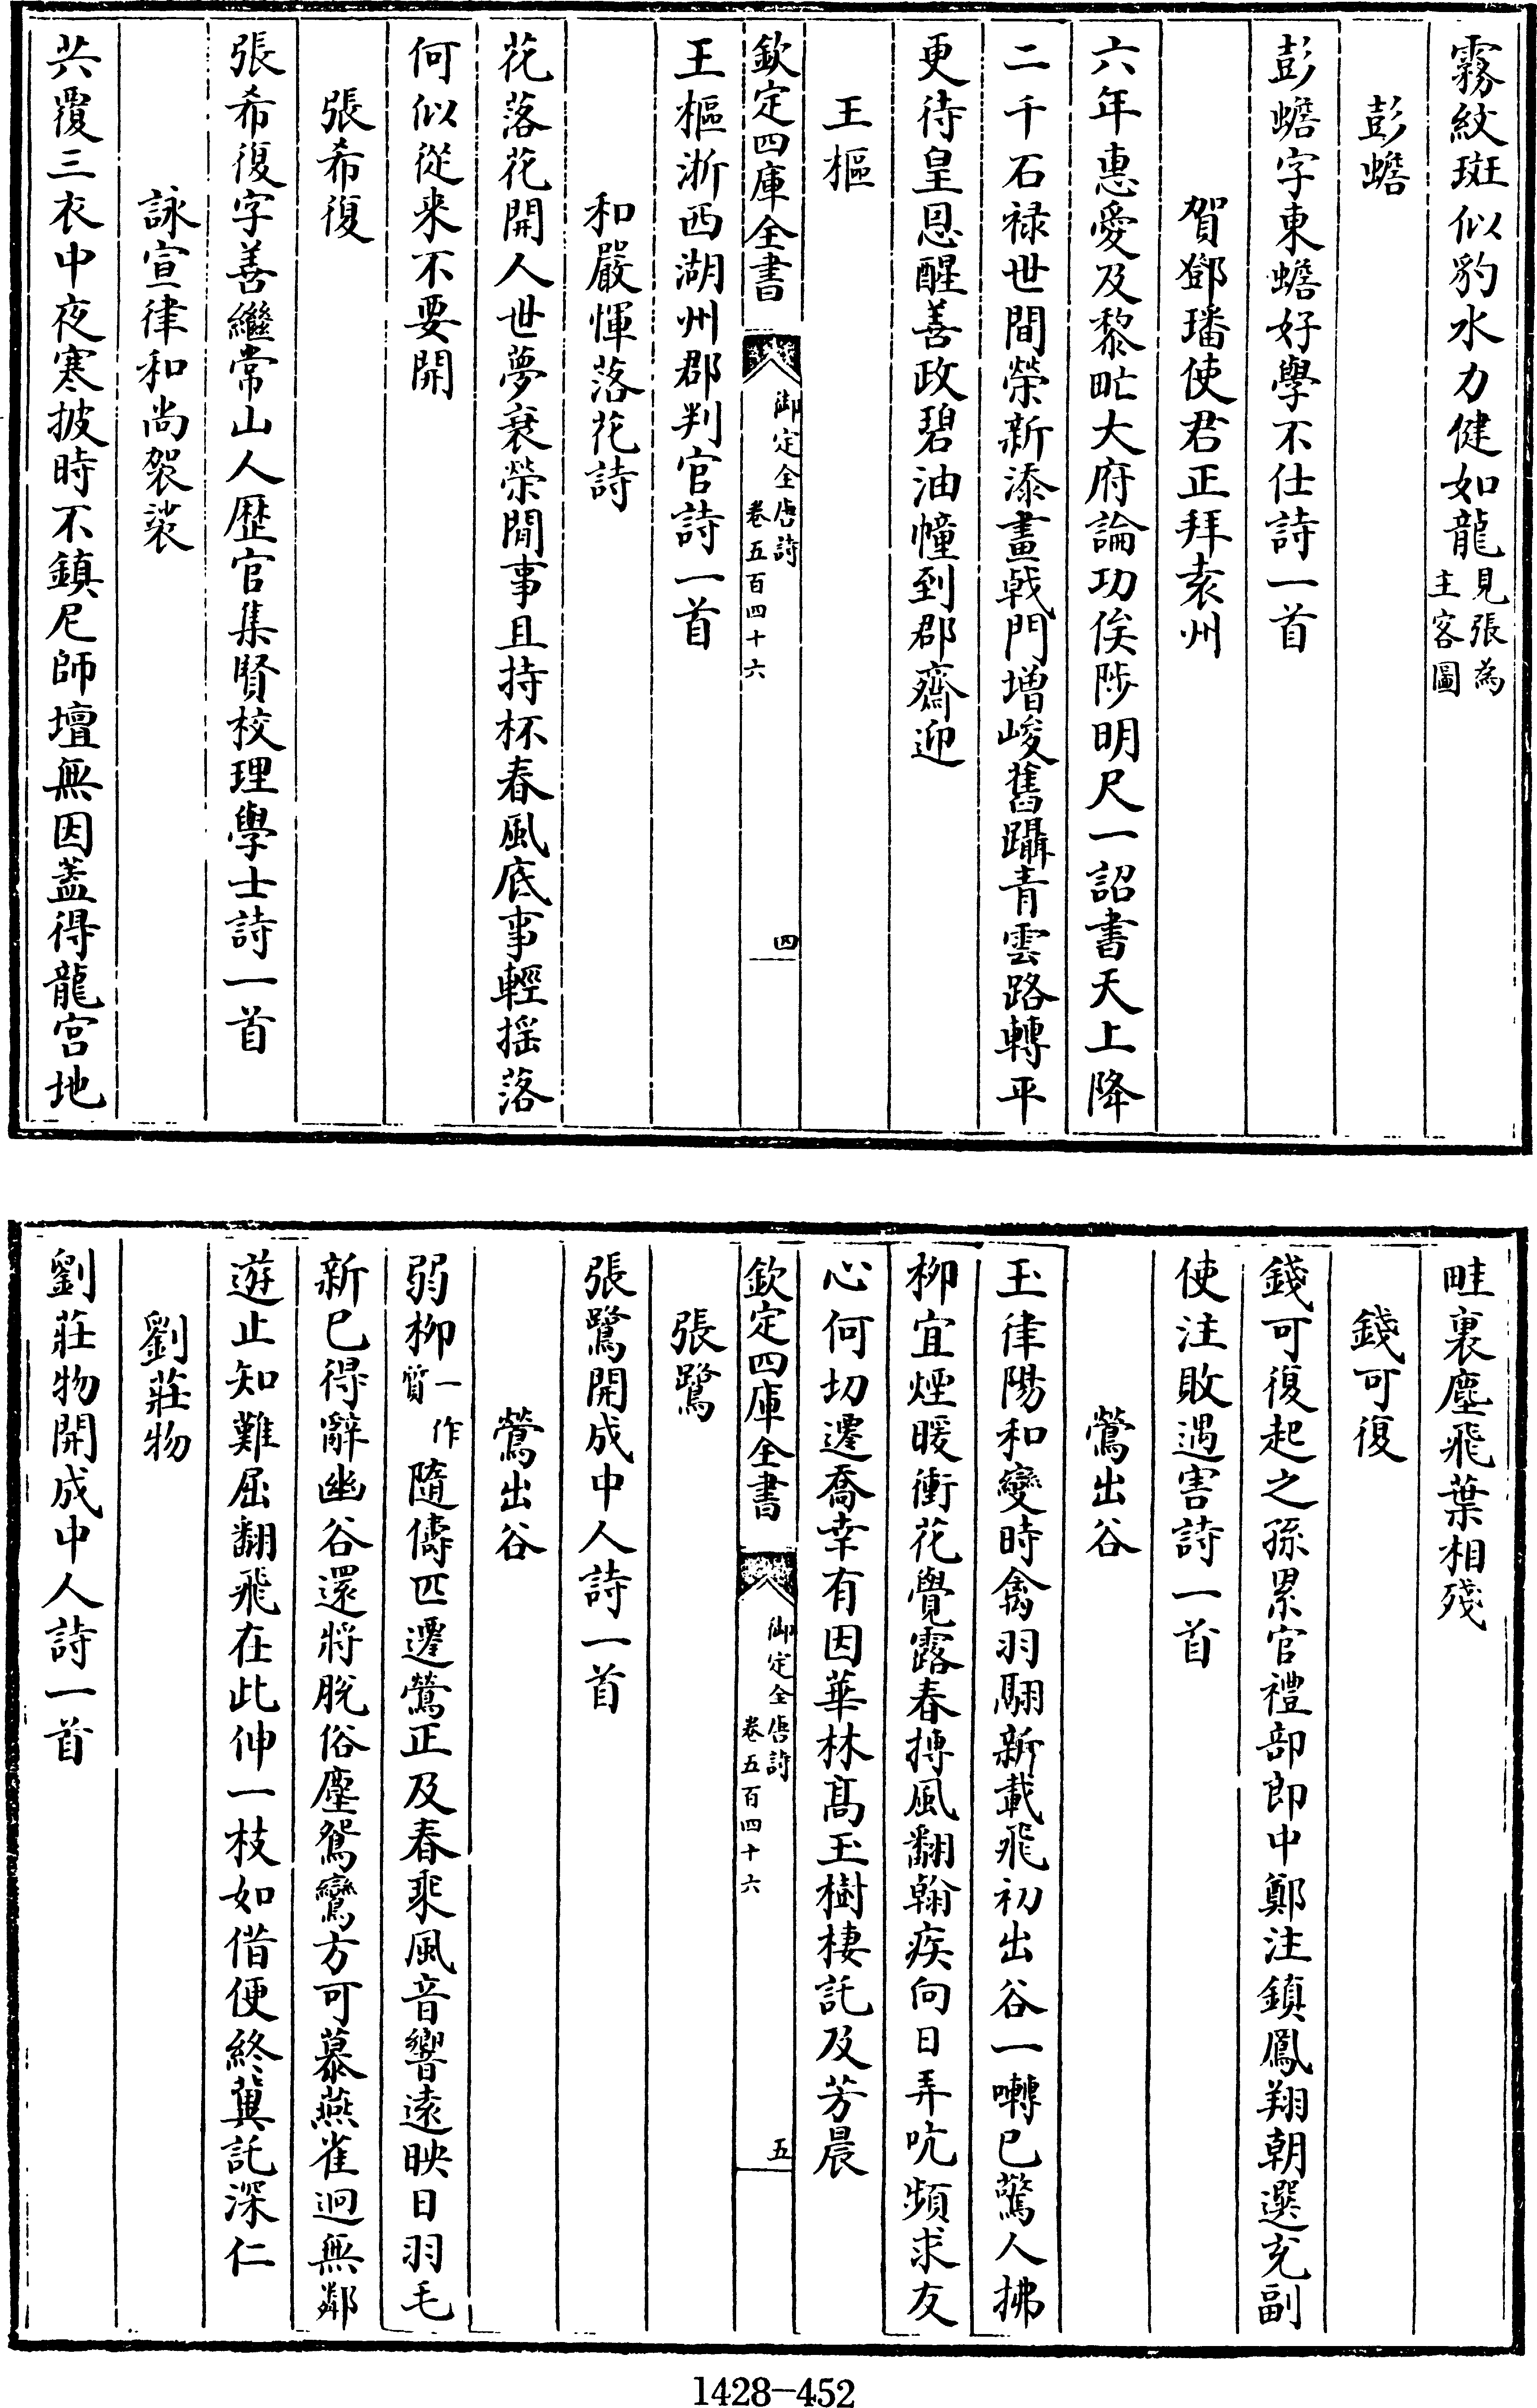 霧紋斑似豹水力健如龍見張為主客圖
彭蟾
彭蟾字東蟾好學不仕詩一首
賀鄧璠使君正拜袁州
六年惠愛及黎甿大府論功俟陟明尺一詔書天上降
二千石禄世間榮新添畫戟門增峻舊躡青雲路轉平
更待皇恩醒善政碧油幢到郡齋迎
王樞
欽定四庫全書
御定全唐詩
卷五百四十六
四
王樞浙西湖州郡判官詩一首
和嚴惲落花詩
花落花開人世夢衰榮閒事且持杯春風底事輕揺落
何似從来不要開
張希復
張希復字善繼常山人歴官集賢校理學士詩一首
詠宣律和尚袈裟
共覆三衣中夜寒披時不鎮尼師壇無因蓋得龍宫地
畦裏塵飛葉相殘
錢可復
錢可復起之孫累官禮部郎中鄭注鎮鳳翔朝選充副
使注敗遇害詩一首
鶯出谷
玉律陽和變時禽羽翮新載飛初出谷一囀已驚人拂
柳宜煙暖衝花覺露春搏風翻翰疾向日弄吭頻求友
心何切遷喬幸有因華林髙玉樹棲託及芳晨
欽定四庫全書
御定全唐詩
卷五百四十六
五
張鷺
張鷺開成中人詩一首
鶯出谷
弱柳一作質隨儔匹遷鶯正及春乘風音響遠映日羽毛
新已得辭幽谷還將脱俗塵鴛鸞方可慕燕雀迥無鄰
遊止知難屈翻飛在此伸一枝如借便終冀託深仁
劉莊物
劉莊物開成中人詩一首
1428-452